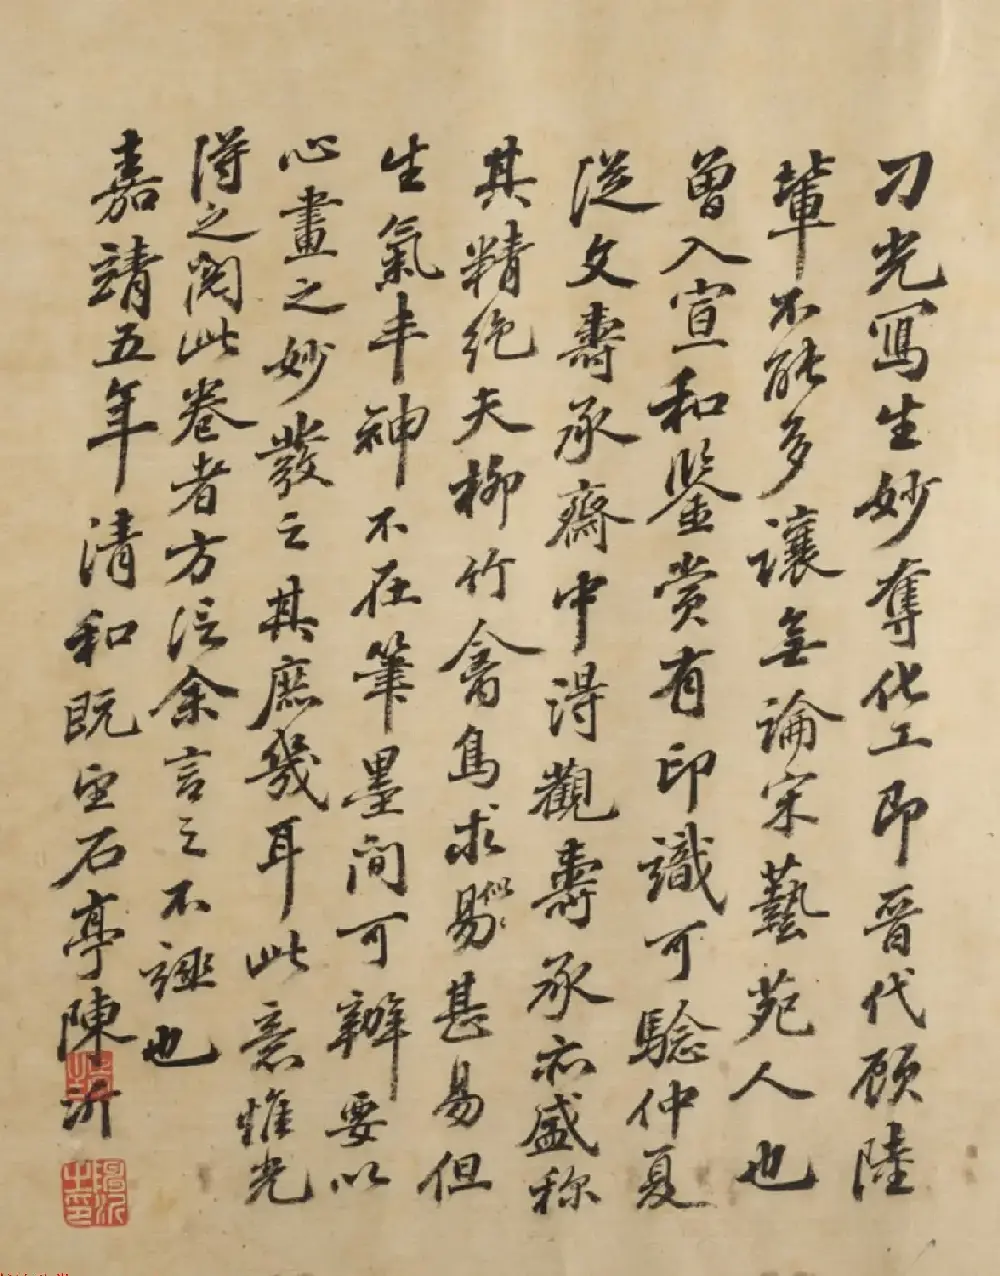 刁光寫生妙奪化工即晉代顧陸
輩不能多讓無論宋藝苑人也
曾入宣和鑒賞有印識可驗仲夏
從文壽承齋中得觀壽承亦盛称
其精絶夫柳竹禽鳥求易貌甚易但
生氣丰神不在筆墨間可辦要以
心畫之妙發之其庶幾耳此意惟光
得之閱此卷者方信余言之不誣也
嘉靖五年清和既望石亭陳沂
陳沂之印